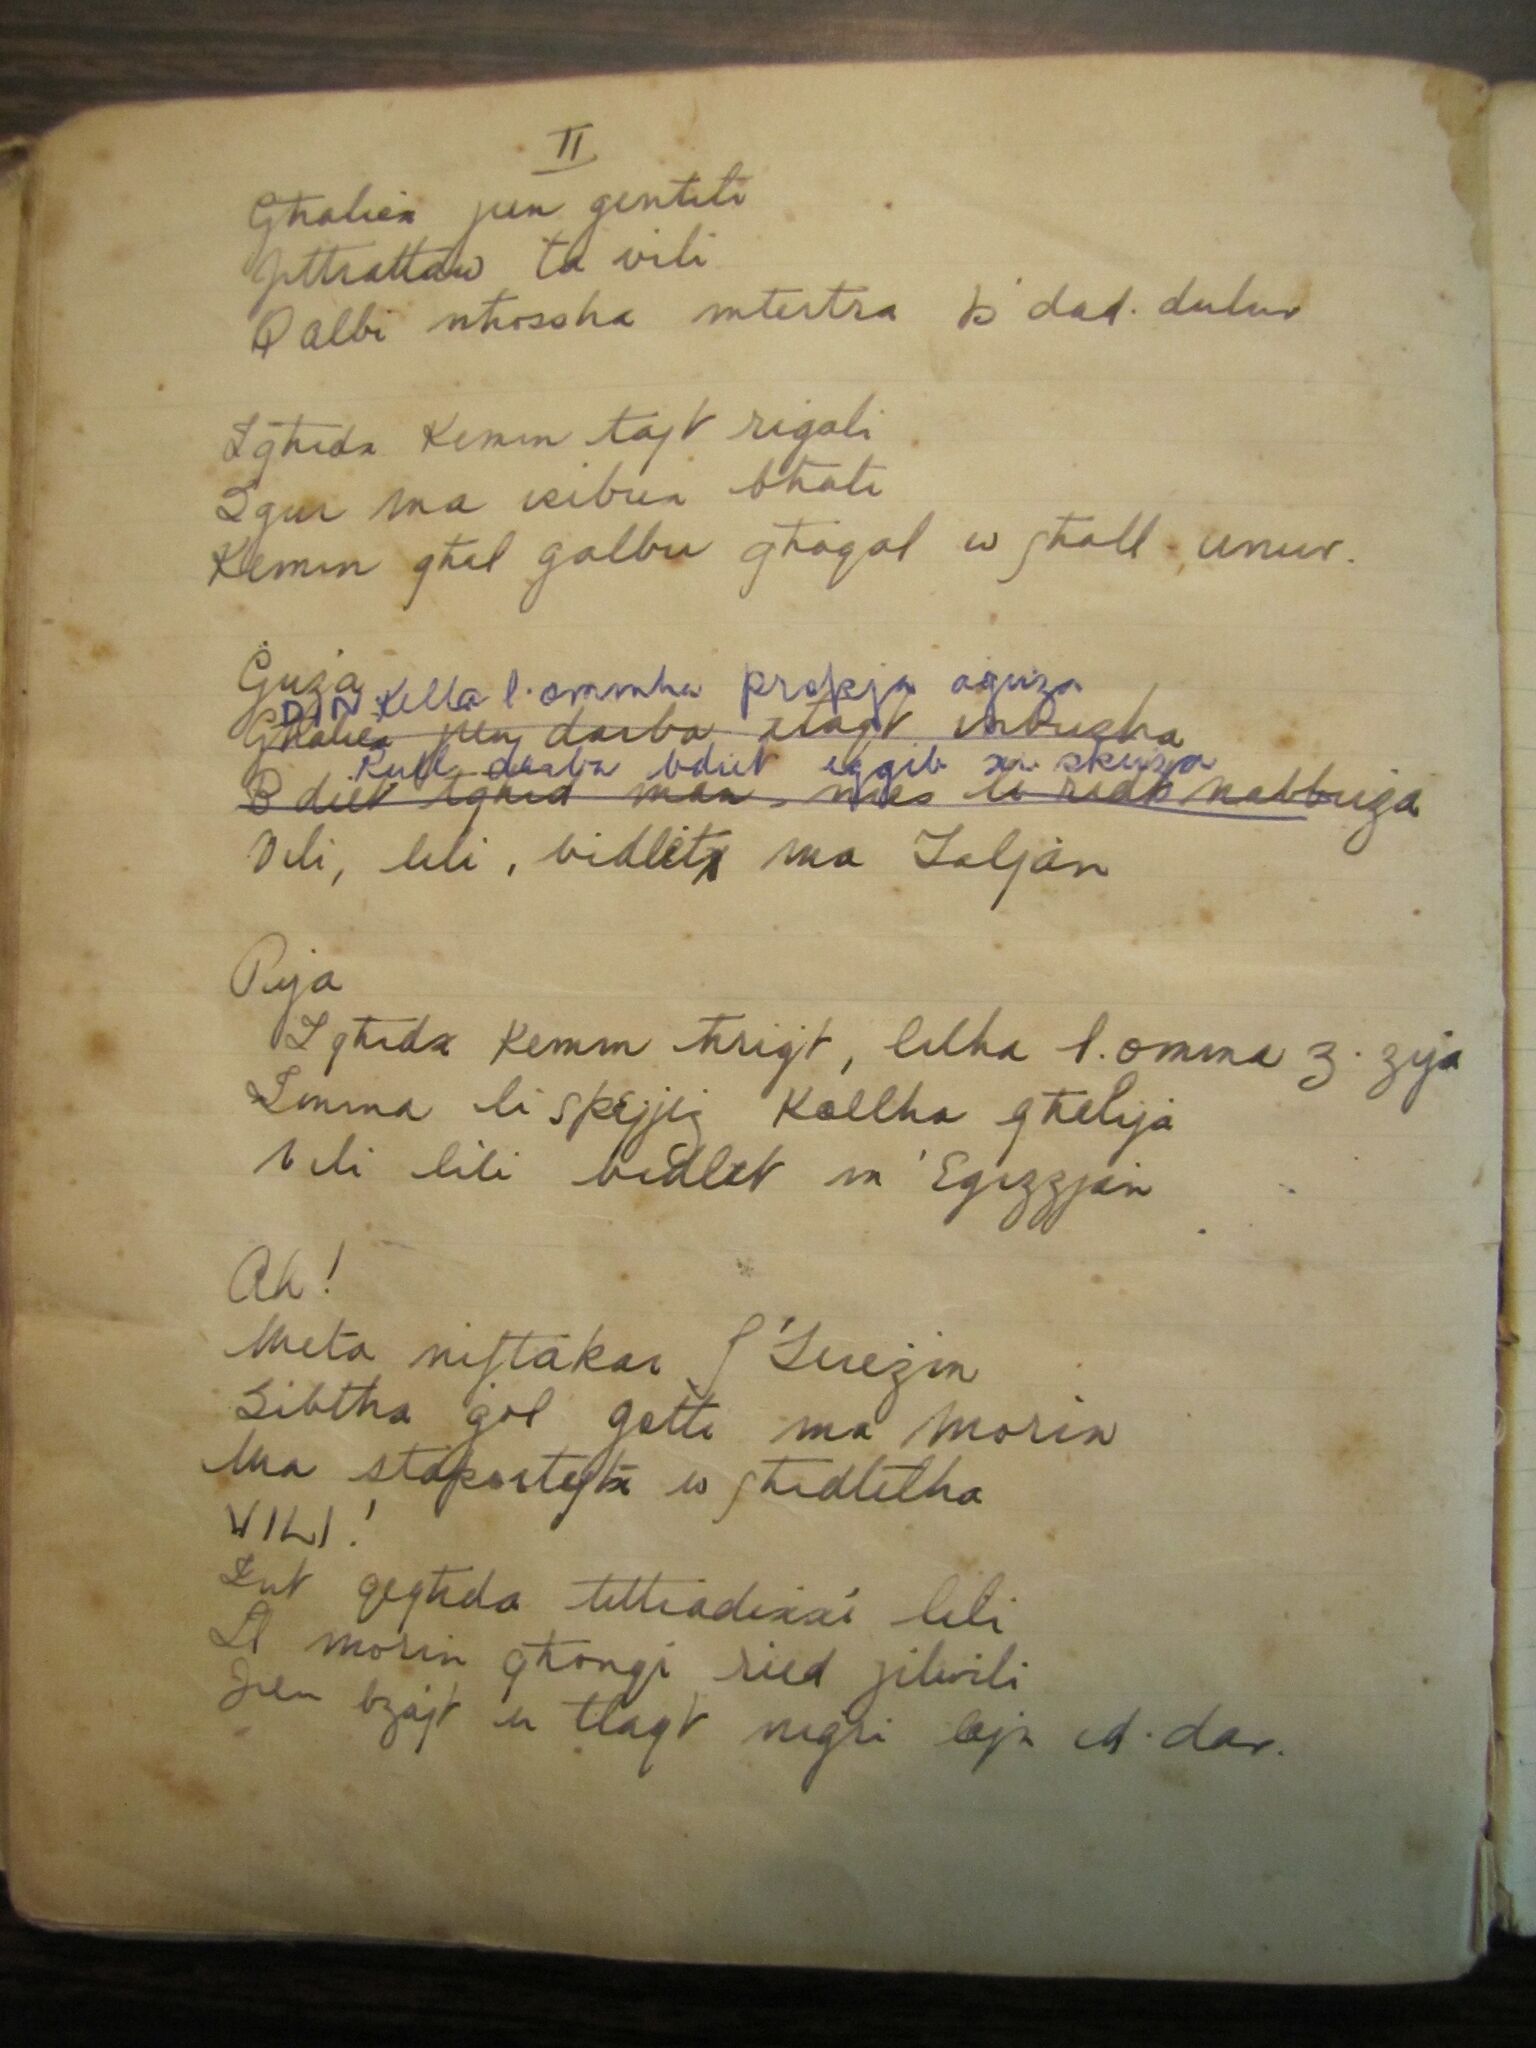 II
Għaliex jien gentili
Jittrattaw ta vili
Qalbi nħossha mtertra b'dad-dulur
Tgħidx kemm tajt rigali
Zgur ma isibux bħali
Kemm għal qalbu għaqal u għall-unur.
Ġuża
DIN Kella l-ommha propja aguza
Għaliex jien darba tlaqt inbusha
Kull darba bdiet iġġib xi skuża
Bdiet tgħid man-nies li ridt nabbuża
Vili, lili, bidlitx ma Taljan
Pija
Tgħidx kemm ħriġt, lilha l-omma z-zija
Imma li spejjeż kollha għalija
Vili lili bidlet m'Egizzjan
Ah!
Meta niftakar f'Ġereżin
Sibtha ġol getti ma Morin
Ma staportejtx u għedtilha
VILI!
Int qegħda tittradixxi lili
Il morin għonqi ried jilwili
Jien bżajt u tlaqt niġri lejn id-dar.